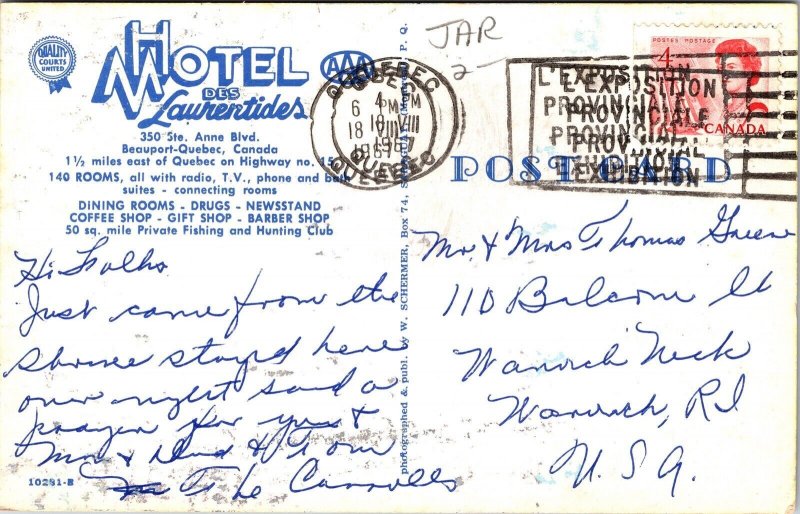 QUALITY
COURTS
UNITED
HOTEL
DES
Laurentides
AAA
350 Ste. Anne Blvd.
Beauport-Quebec, Canada
1½ miles east of Quebec on Highway no. 15
140 ROOMS, all with radio, T.V., phone and bath
suites - connecting rooms
DINING ROOMS - DRUGS - NEWSSTAND
COFFEE SHOP - GIFT SHOP - BARBER SHOP
50 sq. mile Private Fishing and Hunting Club
Hi Folks
Just came from the
Shrine stayed here
over night said a
prayer for you &
Mom & Dad & Tom
The Carrolls
10281-B
photographed & publ. by W. SCHERMER, Box 74, Montreal, P. Q.
JAR
2-
QUEBEC
PM
18 VIII
1967
QUEBEC
L'EXPOSITION
PROVINCIALE
PROVINCIAL
EXHIBITION
POSTES POSTAGE
4
CANADA
POST CARD
Mr & Mrs Thomas Greene
110 Balcom Ct
Warwick Neck
Warwick, RI
U.S.A.